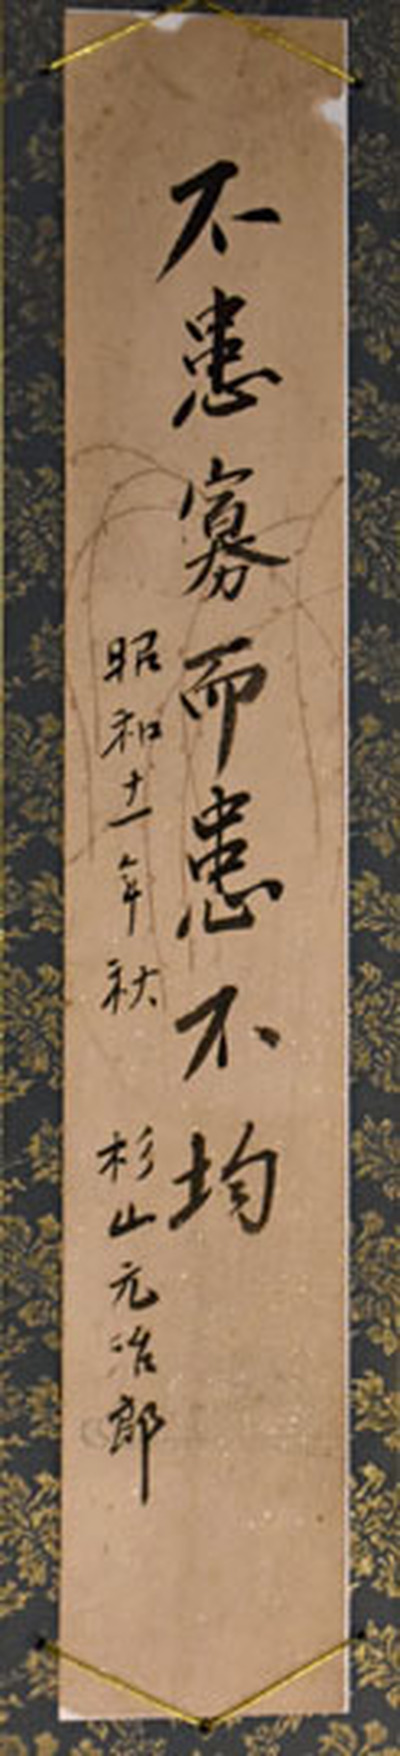 不患寡而患不均
昭和十一年秋
杉山元治郎